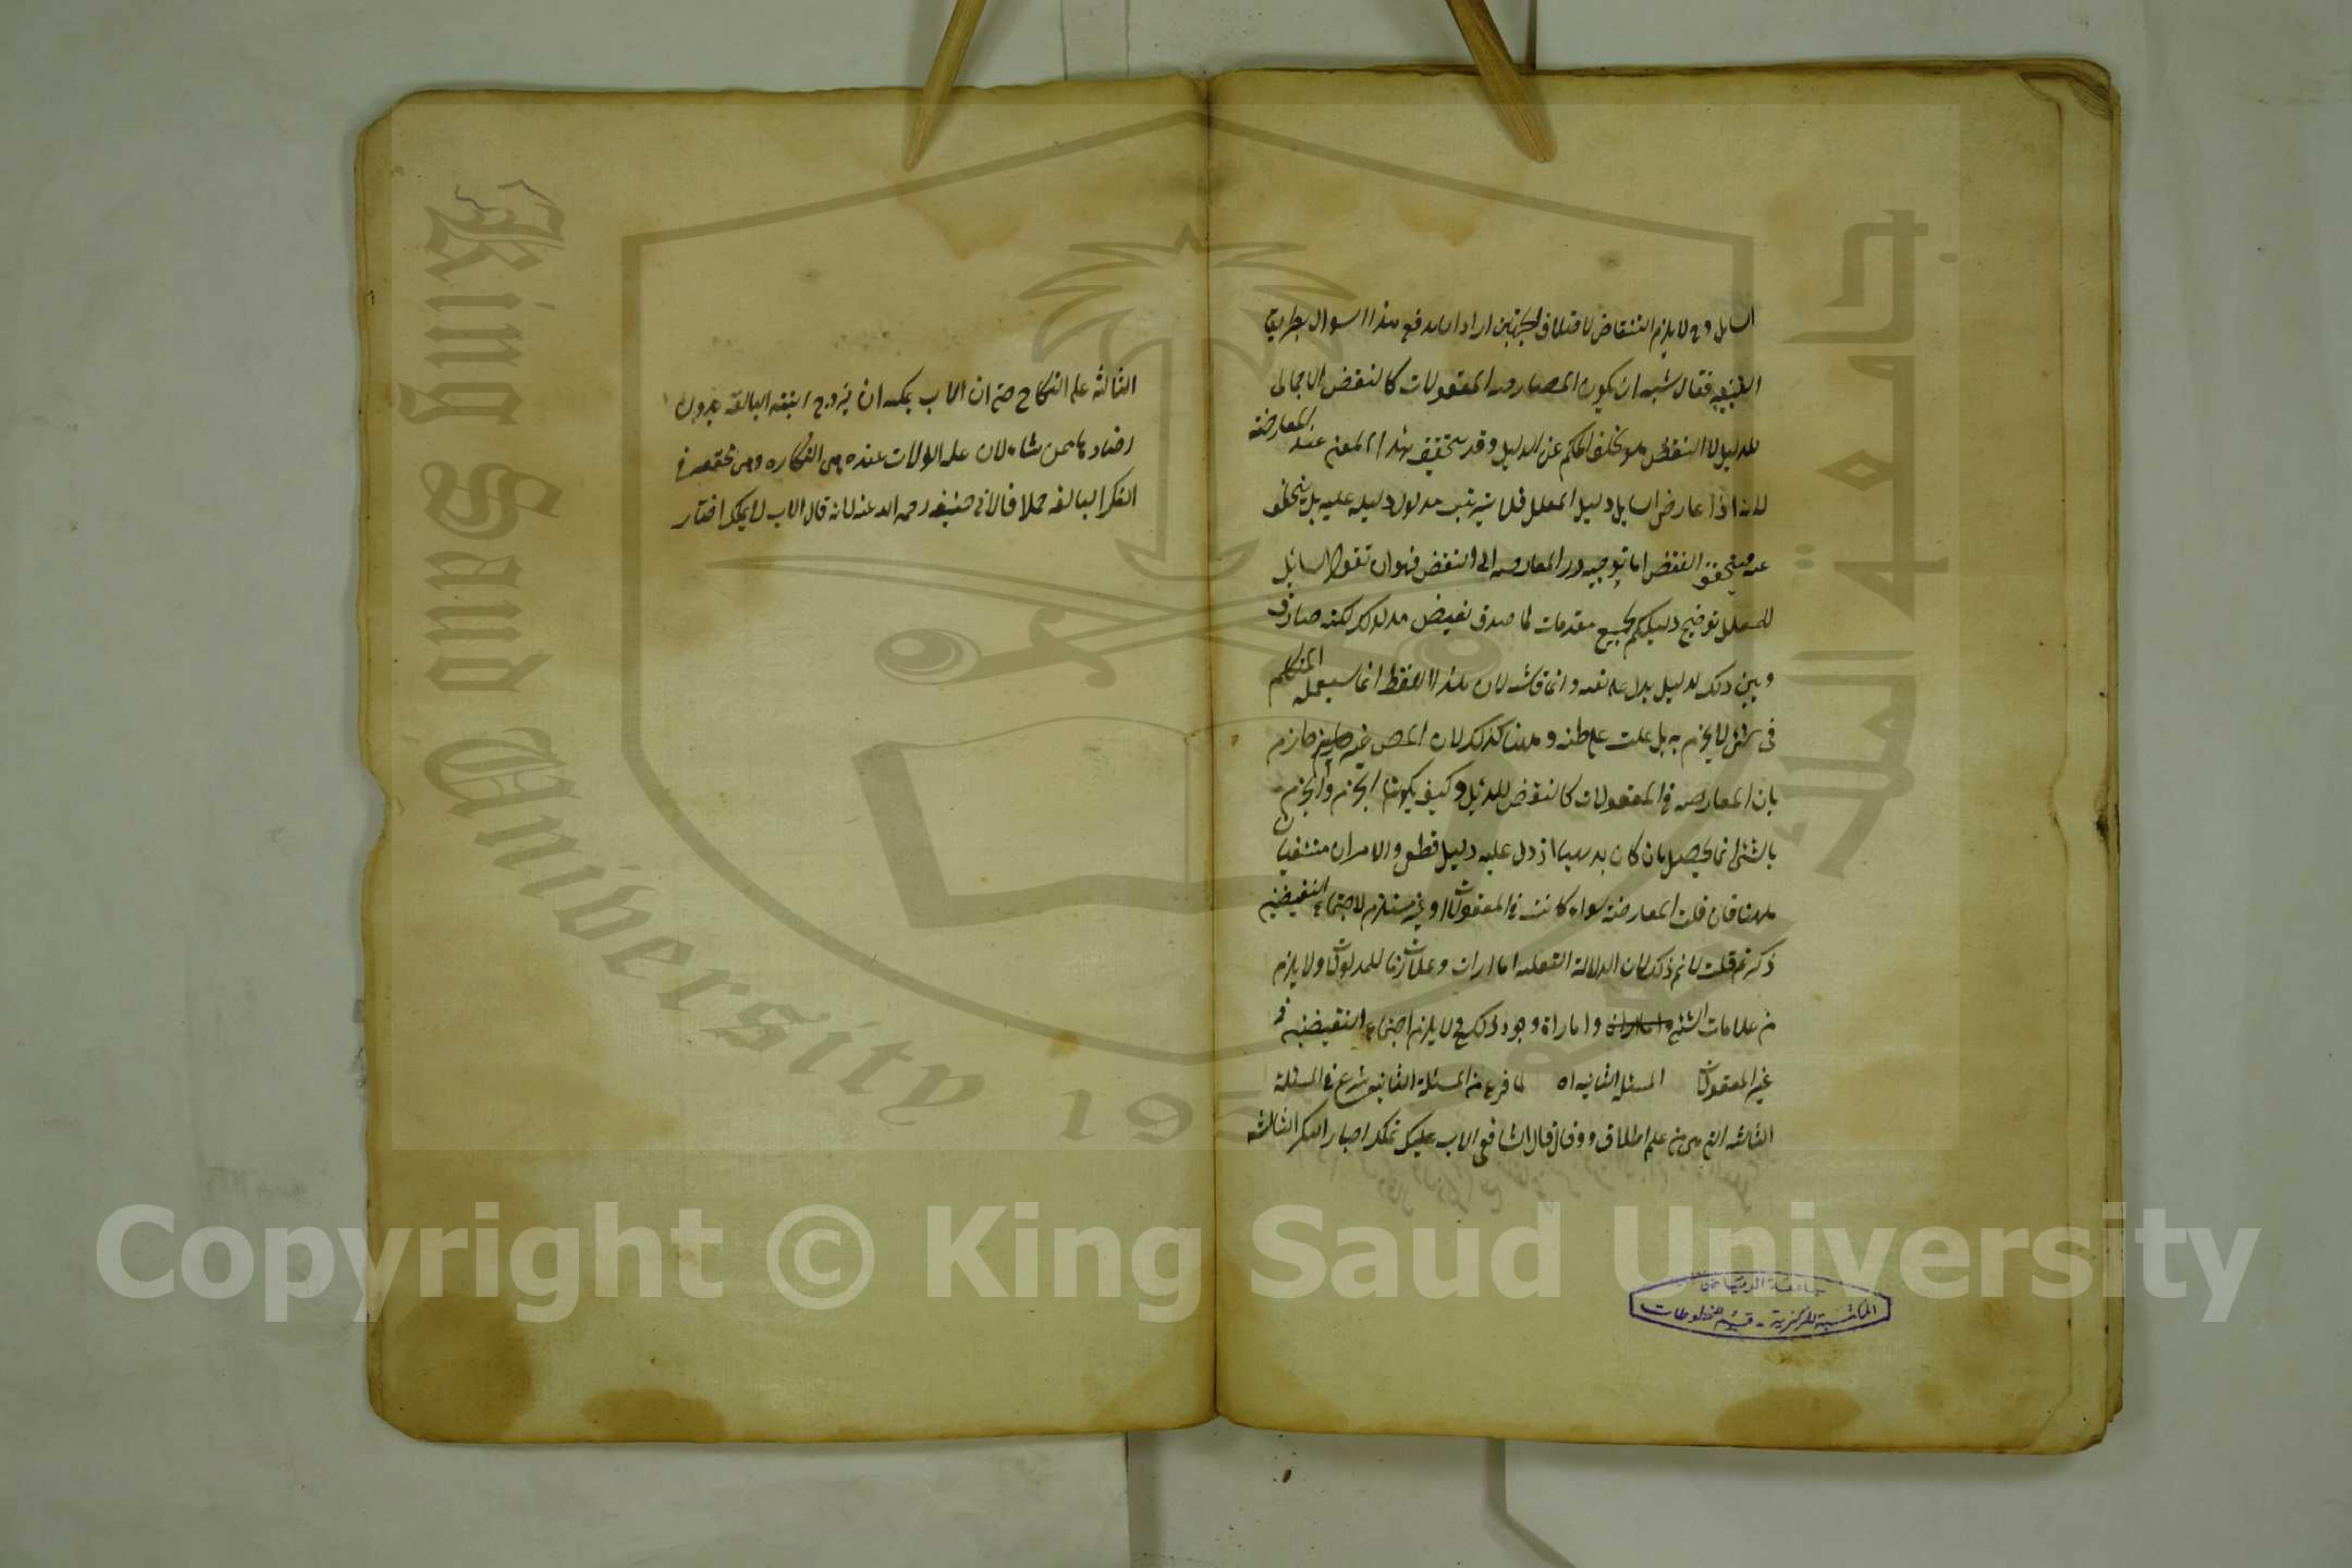 السائل وح لا يلزم التناقض لاختلاف الجهتين اراد ان يدفع هذا السوال بطريق
فقال يشبه ان يكون المعارضه المعقولات كالنقض الاجمالي
للدليل لا النقض هو تخلف الحكم عن الدليل وقد يتحقق هذا المعنى عند المعارضة
لانه اذا عارض السايل دليل المعلل فلا يترتب مدلول دليله عليه بل يتخلف
عنه فيتحقق النقض اما توجيه رد المعارضه الى النقض فهو ان تقول السائل
للمعلل توضيح دليلكم بجميع مقدمات لما صدق نقيض مدلوله لكنه صادق
وبين ذلك لدليل يدل على نفيه وانما قال يشبه لان هذا اللفظ انما يستعمله المتكلم
في شئ لا يجزم به بل غلب على ظنه وههنا كذلك لان المص غير جازم
بان المعارضه في المعقولات كالنقض للدليل وكيف يكون الجزم والجزم
بالشئ انما يحصل بان كان بديهيا اذ دل عليه دليل قطعى والامران منتفيان
ههنا فان قلت المعارضة سواء كانت في المعقولات او غير مستلزم لاجتماع النقيضين
ذكرتم قلت لا نم ذلك لان الدلالة النقليه امارات وعلامات للمدلولات ولا يلزم
من علامات الشئ وامارات وامارة وجود ذلك فح لا يلزم اجتماع النقيضين في
غير المعقولات المسئله الثانيه اه لما فرغ من المسئلة الثانيه شرع في المسئلة
الثالثه التي هي من علم الخلاف وقال قال الشافعي الاب يملك اجبار البكر الثالثه
جامعة الرياض
المكتبة المركزية - قسم المخطوطات
الثالثه على النكاح حتى ان الاب يمكن ان يزوج ابنته البالغه بدون
رضاها ممن شاء لان عله الولات عنده هي البكاره وهي تحققت في
البكر البالغه خلافا لابي حنيفه رحمه الله عنه لانه قال الاب لا يملك اجبار
جامعة الملك سعود
King Saud University
1957
Copyright © King Saud University